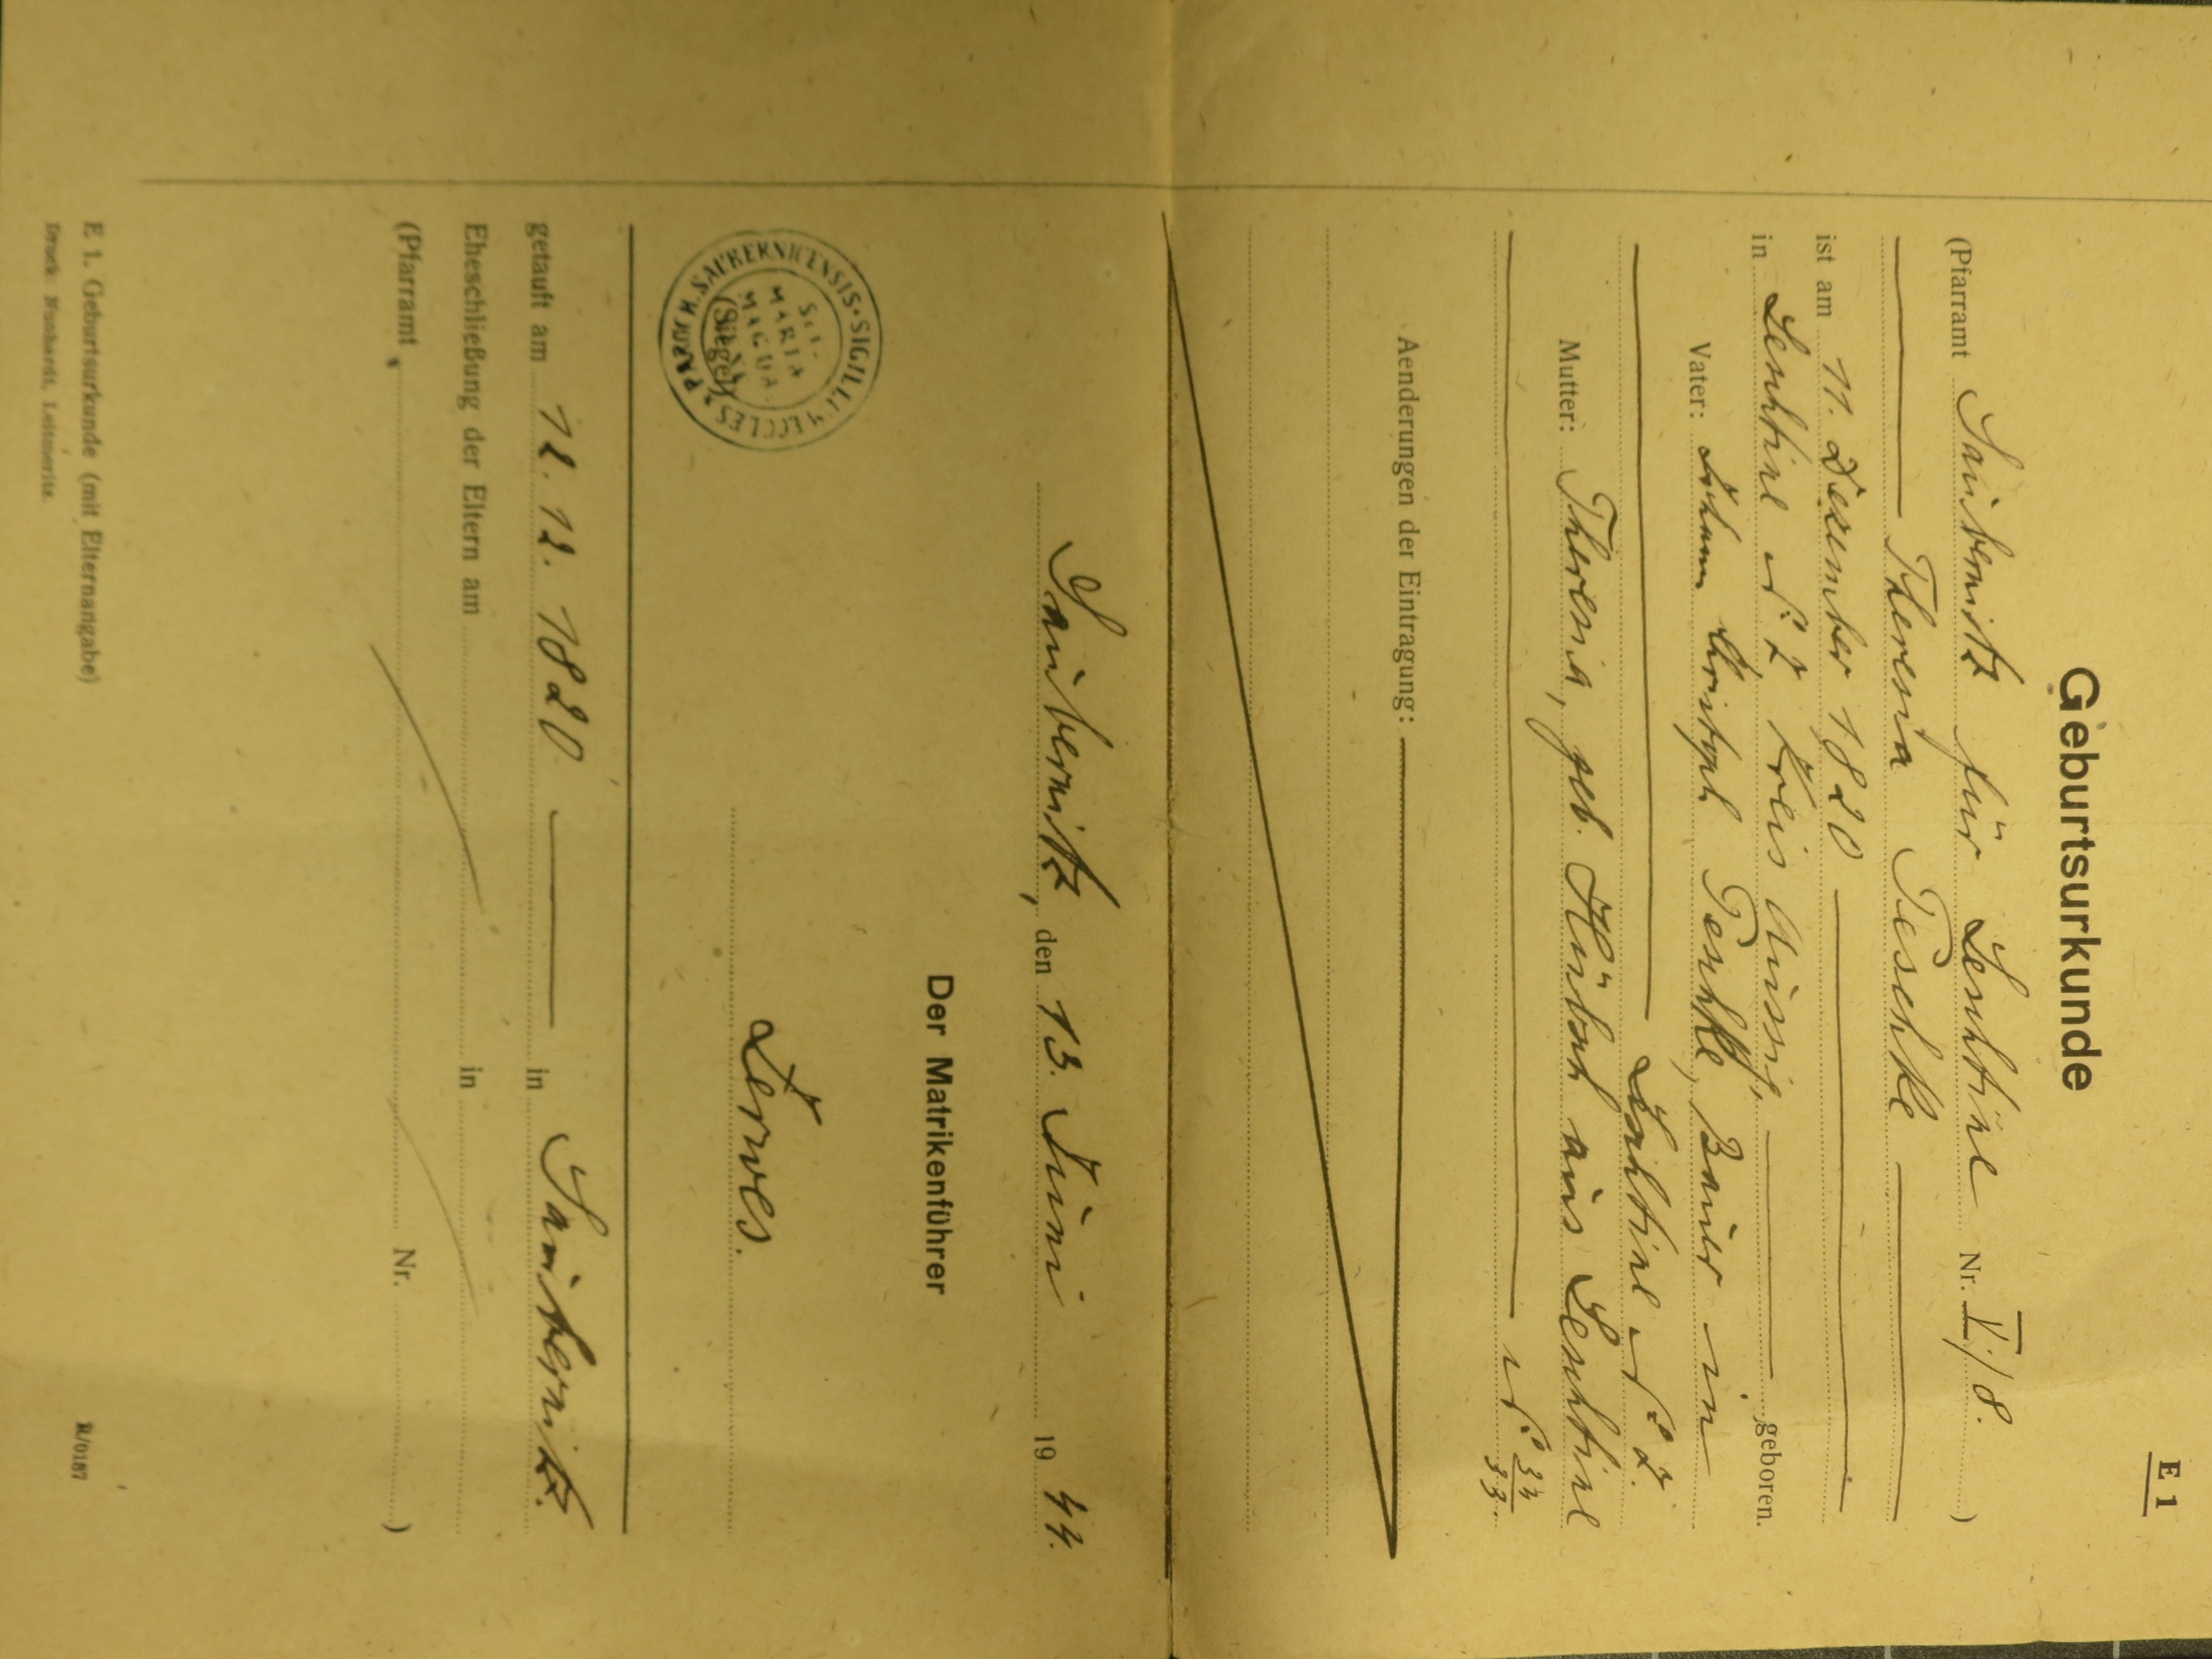 E 1
Geburtsurkunde
(Pfarramt Saubernitz für Leschtine Nr. V./8. )
Theresia Peschke
ist am 11. Dezember 1820
in Leschtine No 7, Kreis Aussig, geboren.
Vater: Johann Christoph Peschke, Bauer in
Leschtine No 7.
Mutter: Theresia, geb. Hübsch aus Leschtine
No 34/33.
Aenderungen der Eintragung:
Saubernitz, den 13. Juni 1944.
Der Matrikenführer
SIGILLUM ECCLES. PAROCH. SAUBERNICENSIS
MARIA
MAGDA
(Siegel)
Zerwes.
getauft am 12. 12. 1820 in Saubernitz.
Eheschließung der Eltern am in
(Pfarramt Nr. )
E 1. Geburtsurkunde (mit Elternangabe)
R/0187
Druck: Leitmeritz.